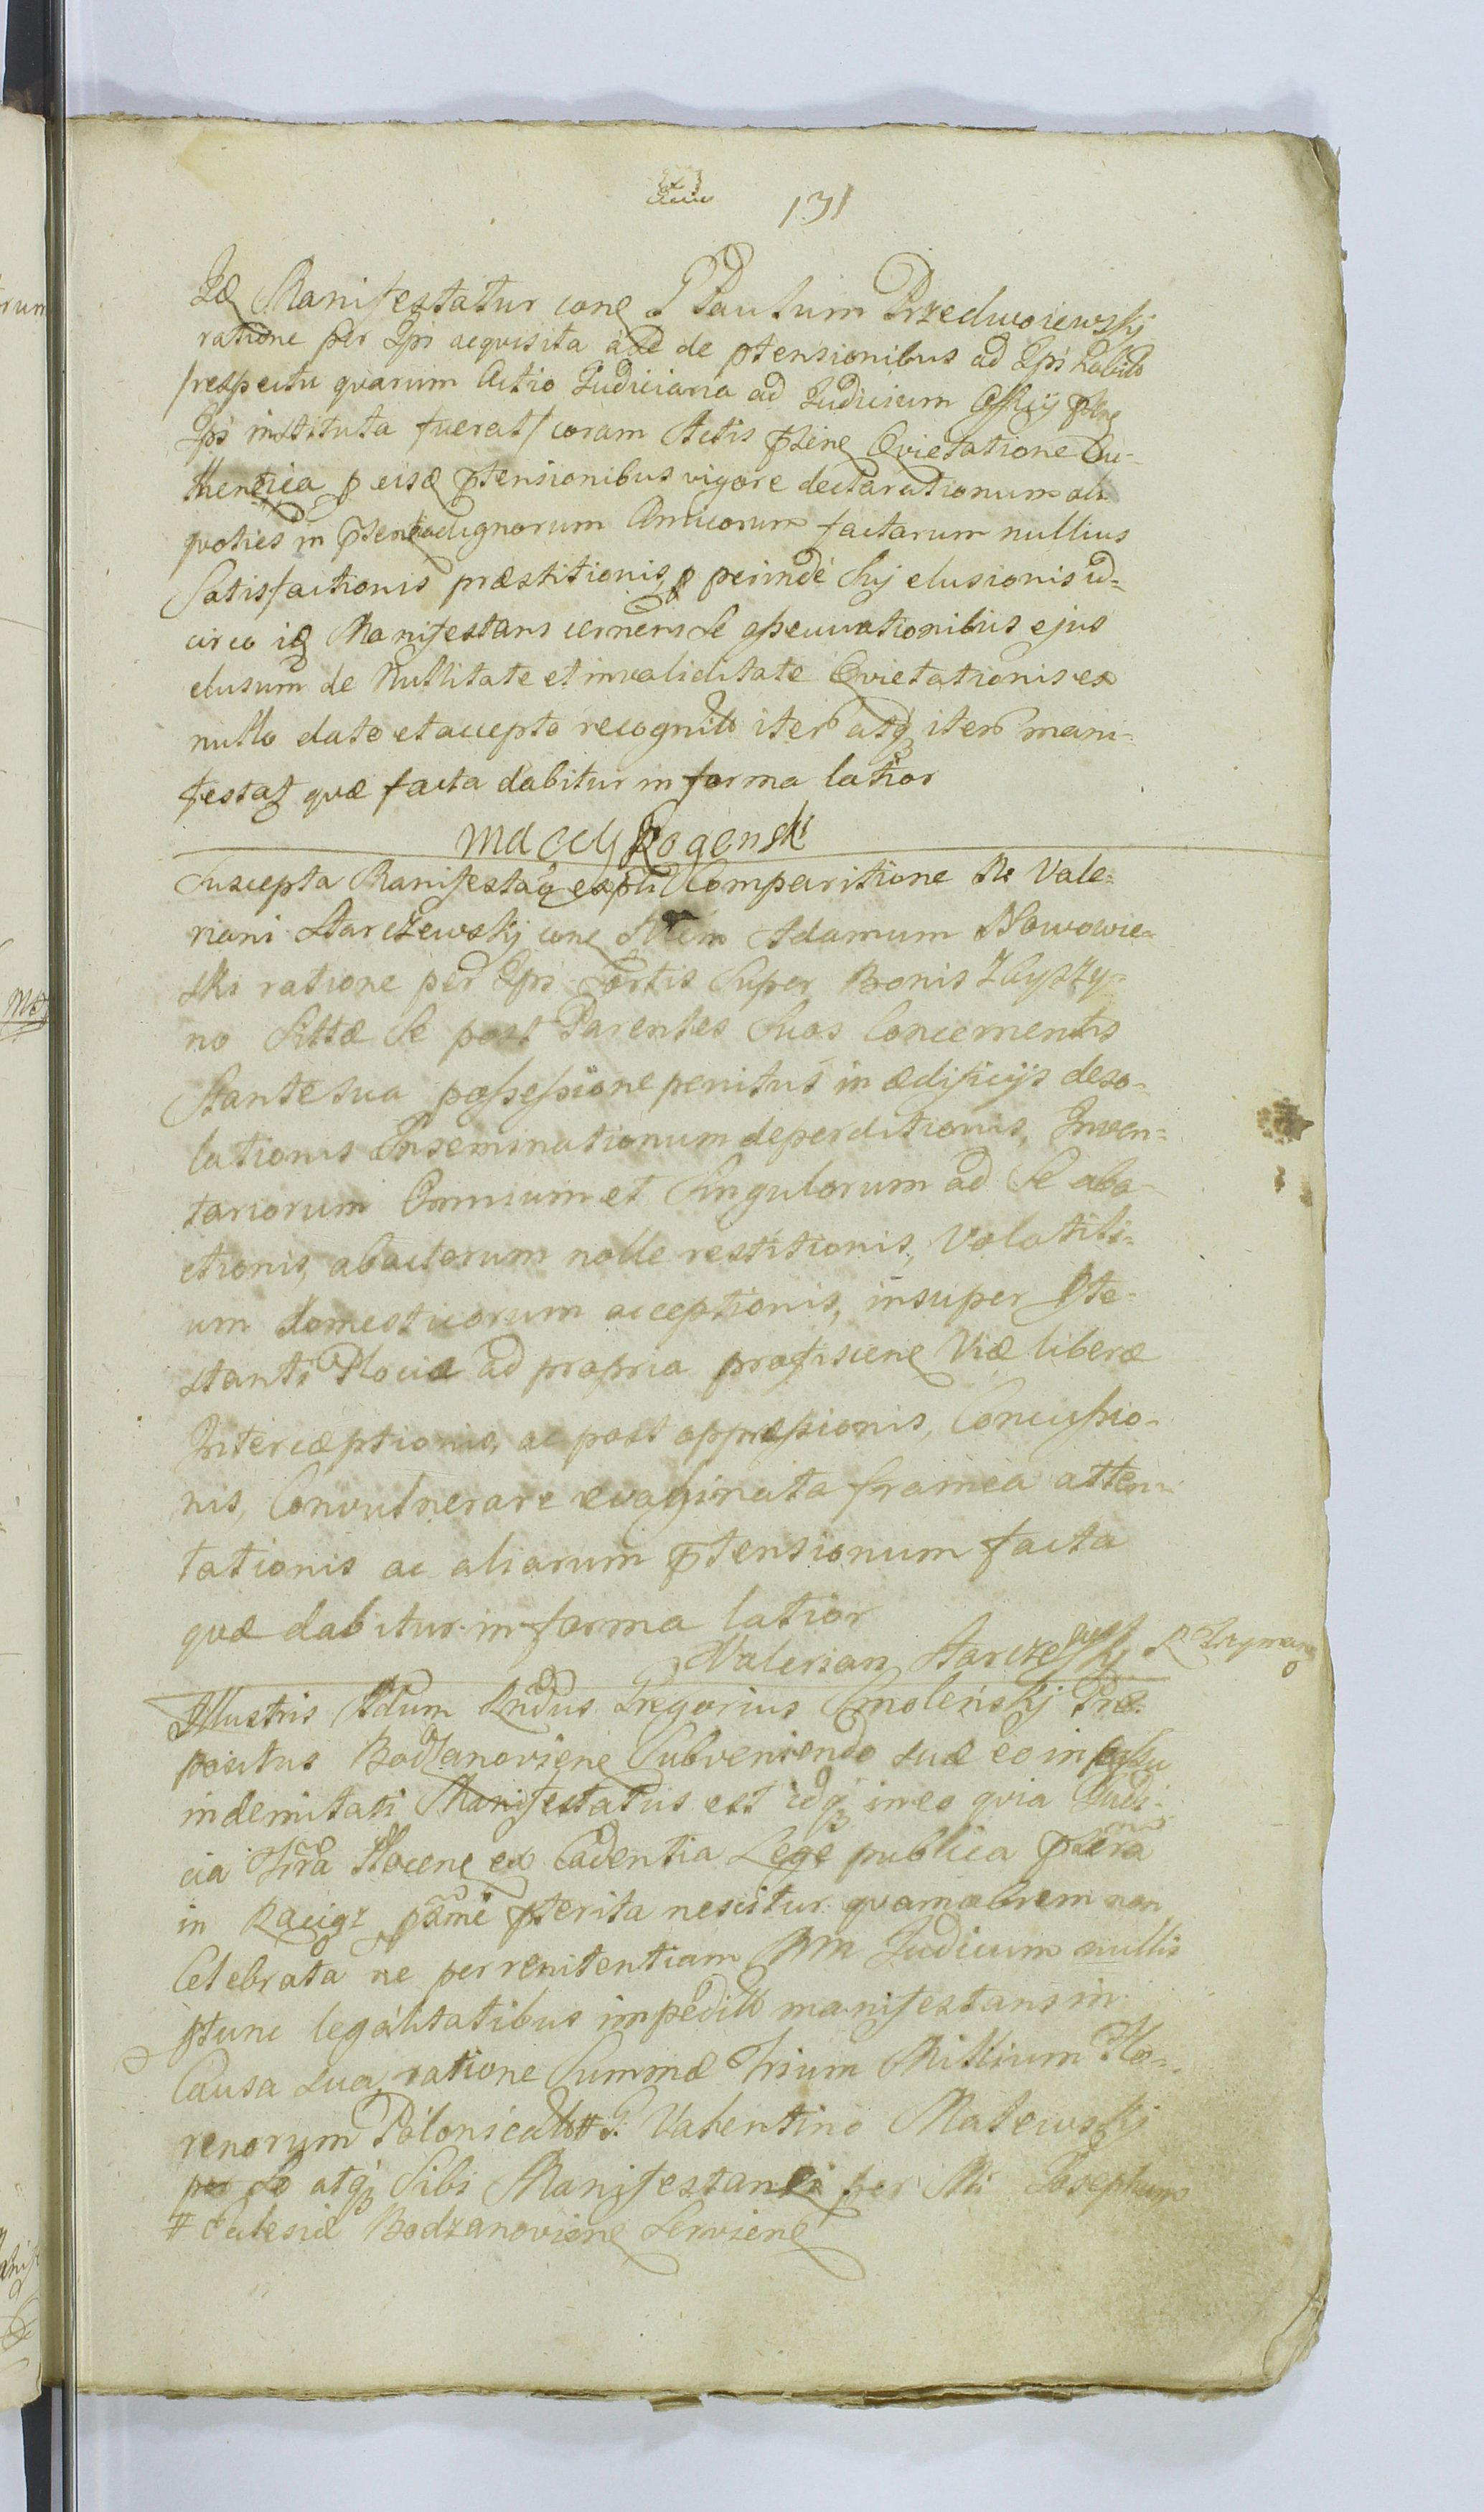 131
Manifestatur con P Paulum Przedwoiewskj
ratione per Ipm acqvisita de ptensionibus ad Ipm habito
/respectu qvarum Actio Judiciaria ad Judicium Offcij
Ipm instituta fuerat/ coram Actis Qvietatione Au-
thentica p eisd ptensionibus vigore declarationum ali
qvoties in Amicorum factarum nullius
Satisfactionis præstitionis, p perinde Suj elusionis id-
circo id Manifestans cernens Se ejus
elusum de Nullitate et invaliditate Qvietationis ex
nullo dato et accepto recognito iter atq iter mani-
festat qvæ facta dabitur in forma latior
Maciy Rogenski
Suscepta Manifesta Comparitione M Vale-
riani Starczewskj con M Adamum Nowowie-
ski ratione per Ipm Sortis Super Bonis Zbyszy-
no Sittæ Se post Parentes Suos Concernentis
Stante sua possessione penitus in ædificijs deso-
lationis Inseminationum deperditionis, Inven-
tariorum Omnium et Singulorum ad Se aba-
ctionis, abactorum nolle restitionis, Volatili-
um domesticorum acceptionis, insuper Pte-
stanti Plocia ad propria proficiscen Viæ liberæ
Interceptionis, ac post oppressionis, Concussio-
nis, Convulnerare evaginata framea atten-
tationis ac aliarum ptensionum facta
qvæ dabitur in forma latior
Valerian Starczewskj
Illustris Adum Rndus Gregorius Smolenskj Præ-
positus Bodzanovien Subveniendo suæ eo in passu
indemitati Manifestatus est idq in eo qvia Judi-
cia Trra Plocen ex Cadentia Lege publica
in Raciąz pterita nescitur qvamobrem non
Celebrata ne per renitentiam MM Judicum nullis
ptunc legalitatibus impedito manifestans in
Causa sua ratione Summæ Trium Millium Flo-
renorum Polonicalto # P. Valentino Malewskj
per Se atq Sibi Manifestanti per M Josephum
# Eclesiæ Bodzanovien Servien